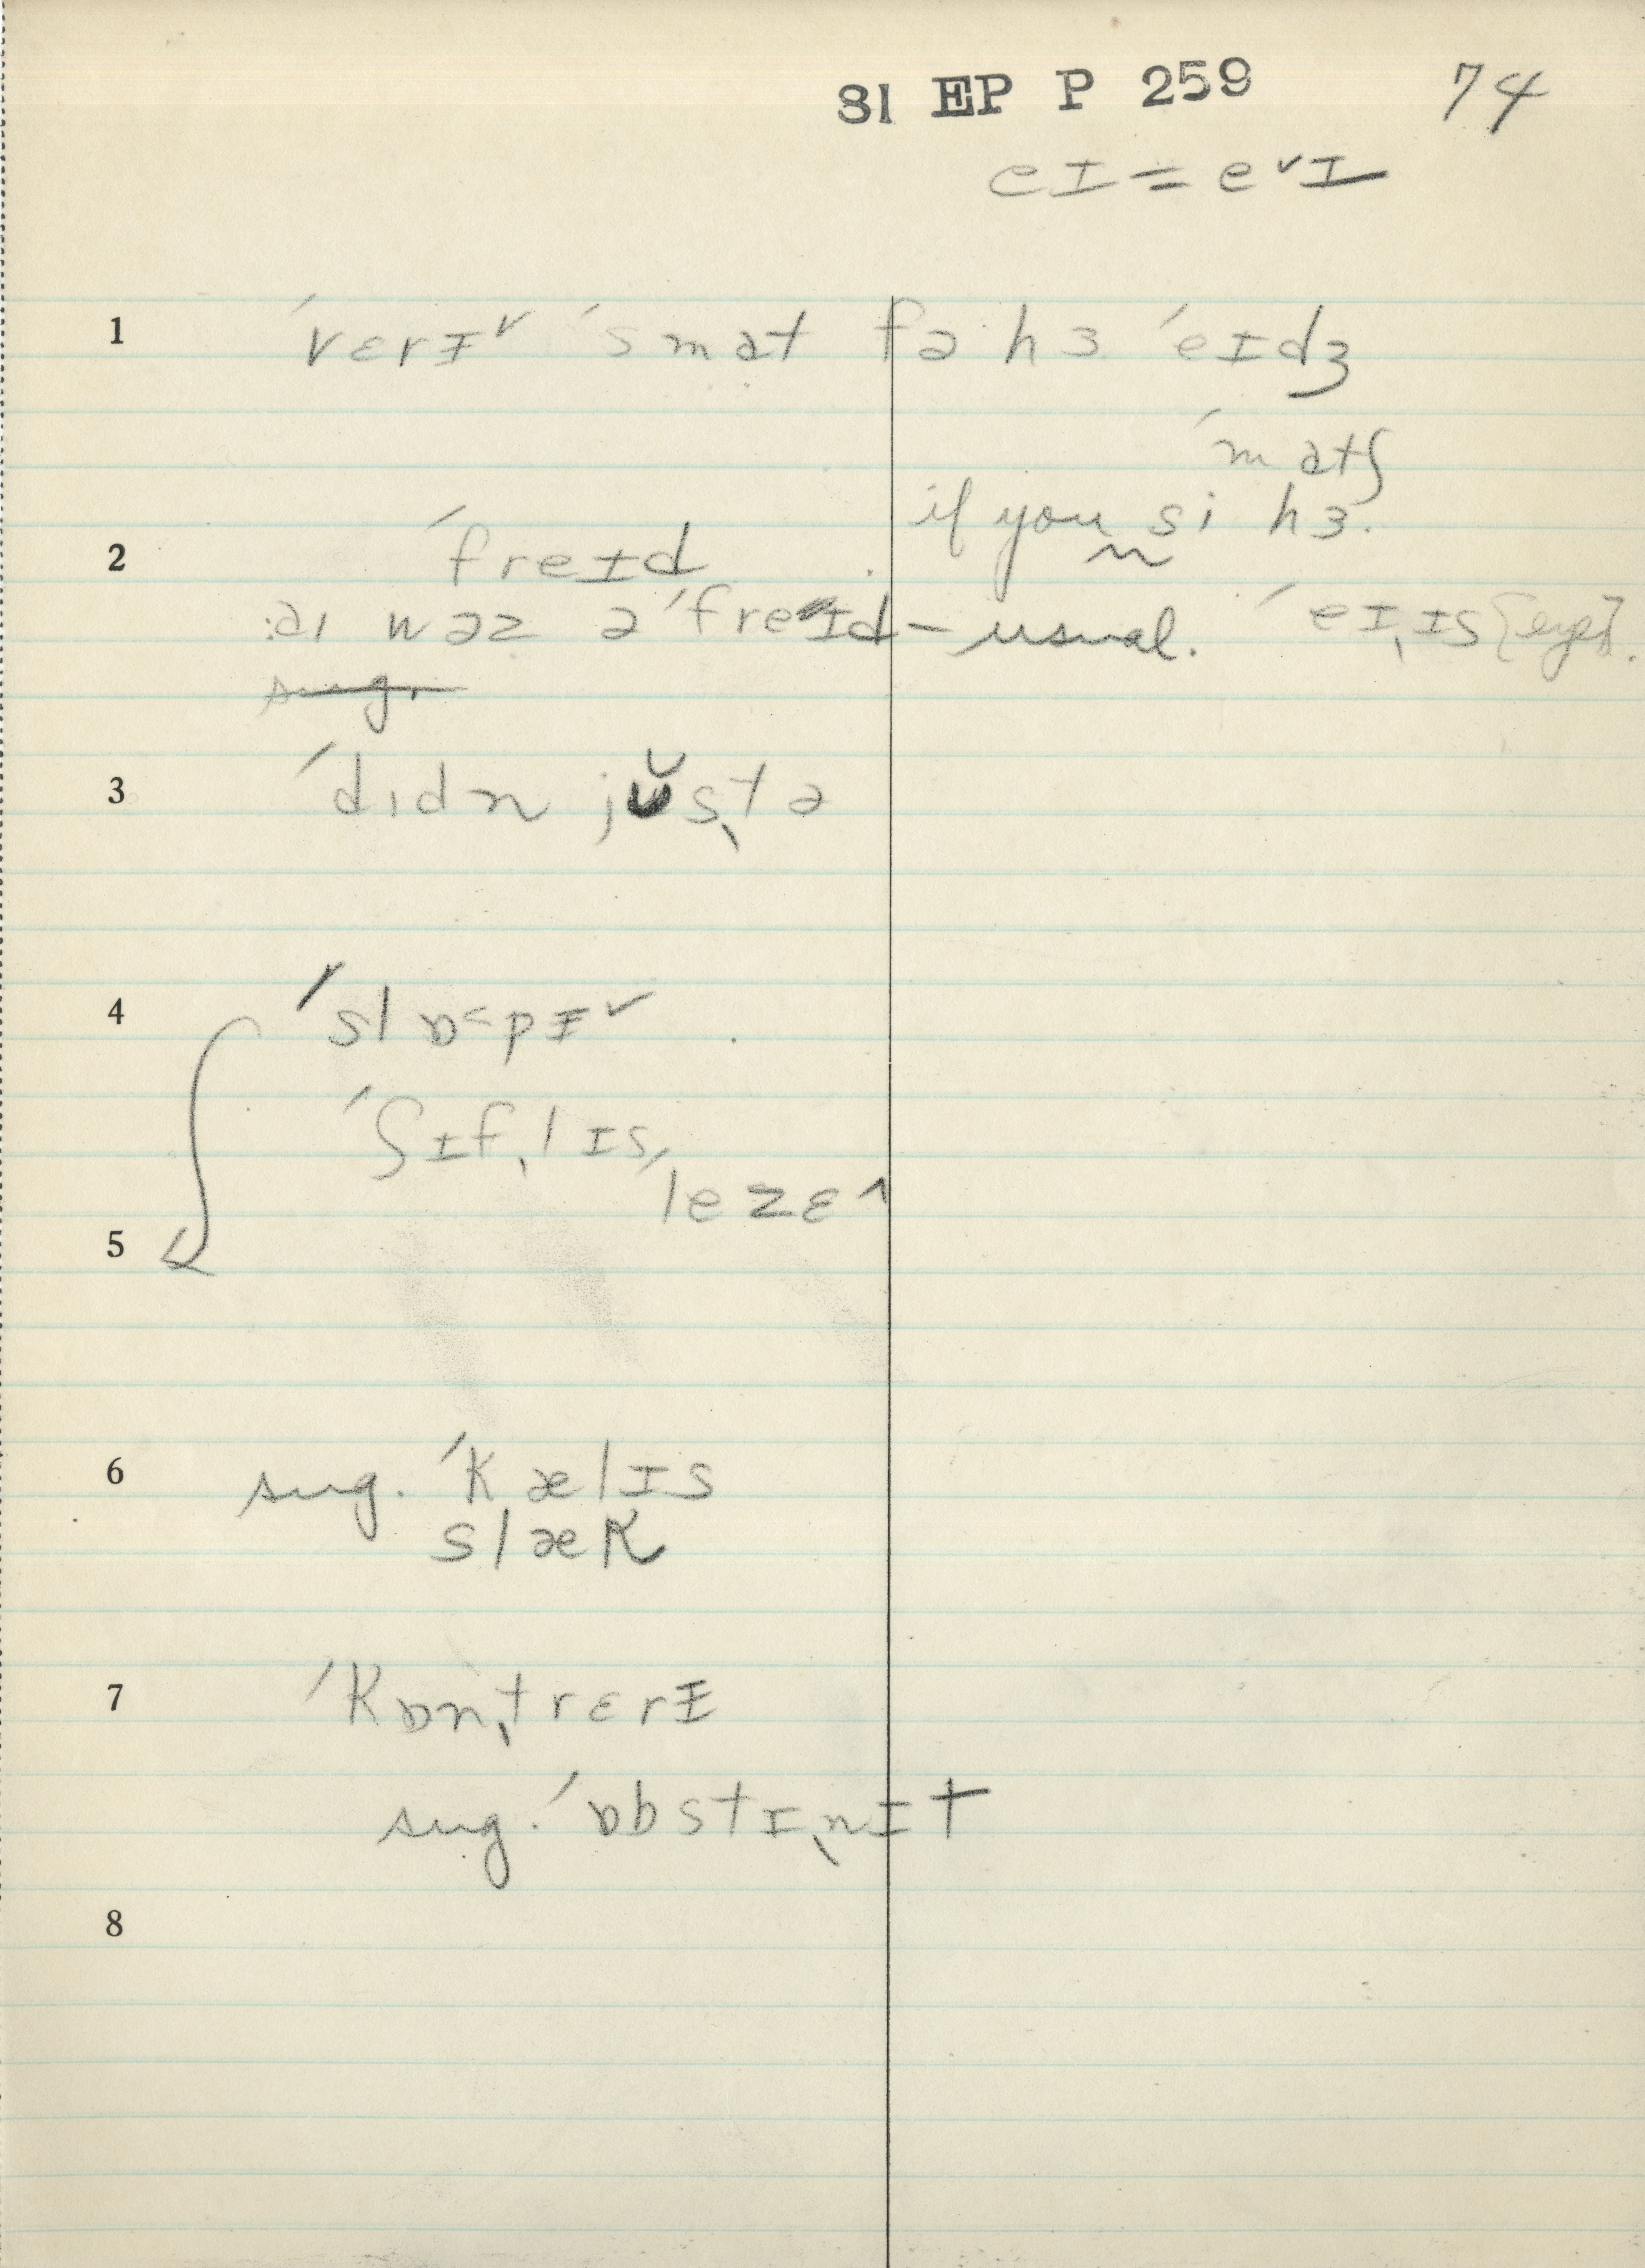 81 EP P 259 74
eɪ = e˅ɪ
1 ˊvɛrɪ˅ ˊsmat fə hɜ ˊeɪdʒ
ˊmatʃ
if you si hɜ.
2 ˊfreɪd
:aɪ wəz əˊfreɪd – usual. ˊeɪˌɪs [eyes].
sug.
3 ˊdɪdn jŭsˌtə
4 ˊslɒ˂pɪ˅
ˊʃɪfˌlɪs,
ˊlezɛ^
5
6 sug. ˊkælɪs
slæk
7 ˊkɒnˌtrɛrɪ
sug. ˊɒbstɪˌnɪt
8